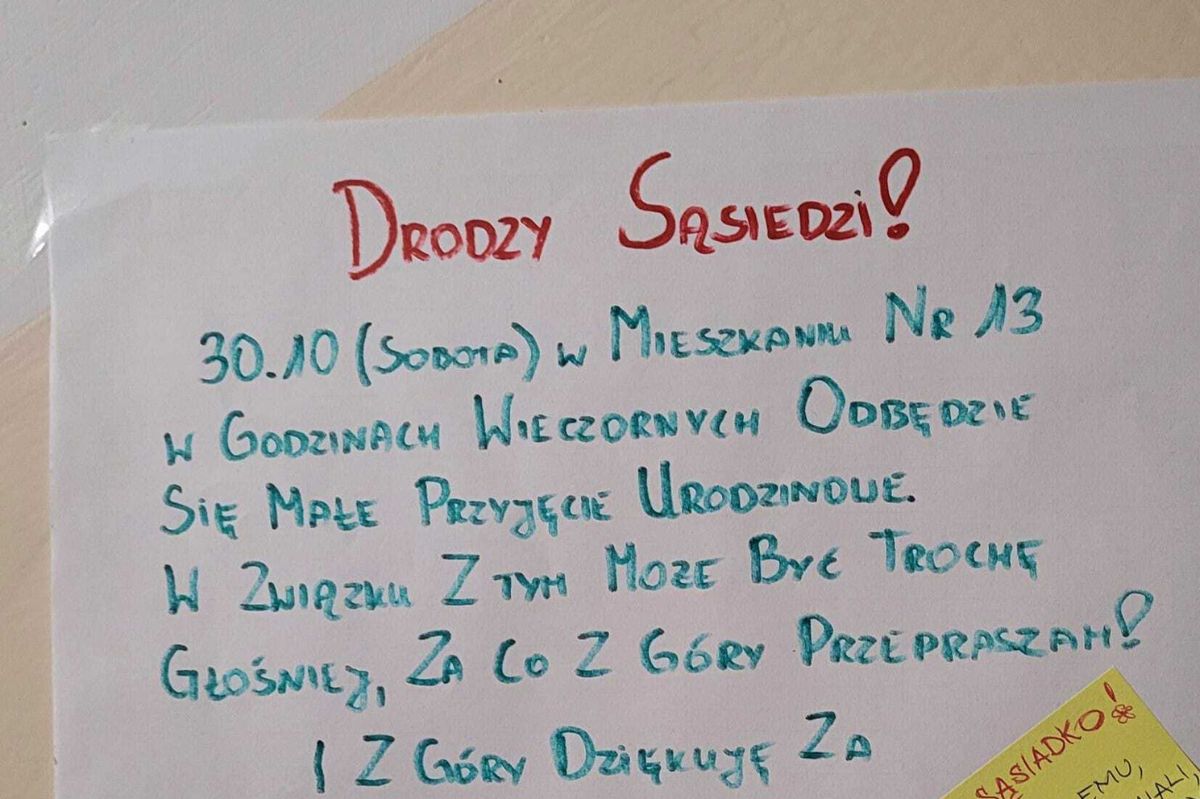 DRODZY SĄSIEDZI!
30.10 (SOBOTA) W MIESZKANIU NR 13
W GODZINACH WIECZORNYCH ODBĘDZIE
SIĘ MAŁE PRZYJĘCIE URODZINOWE.
W ZWIĄZKU Z TYM MOŻE BYĆ TROCHĘ
GŁOŚNIEJ, ZA CO Z GÓRY PRZEPRASZAM!
I Z GÓRY DZIĘKUJĘ ZA
SĄSIADKO!
EMU,